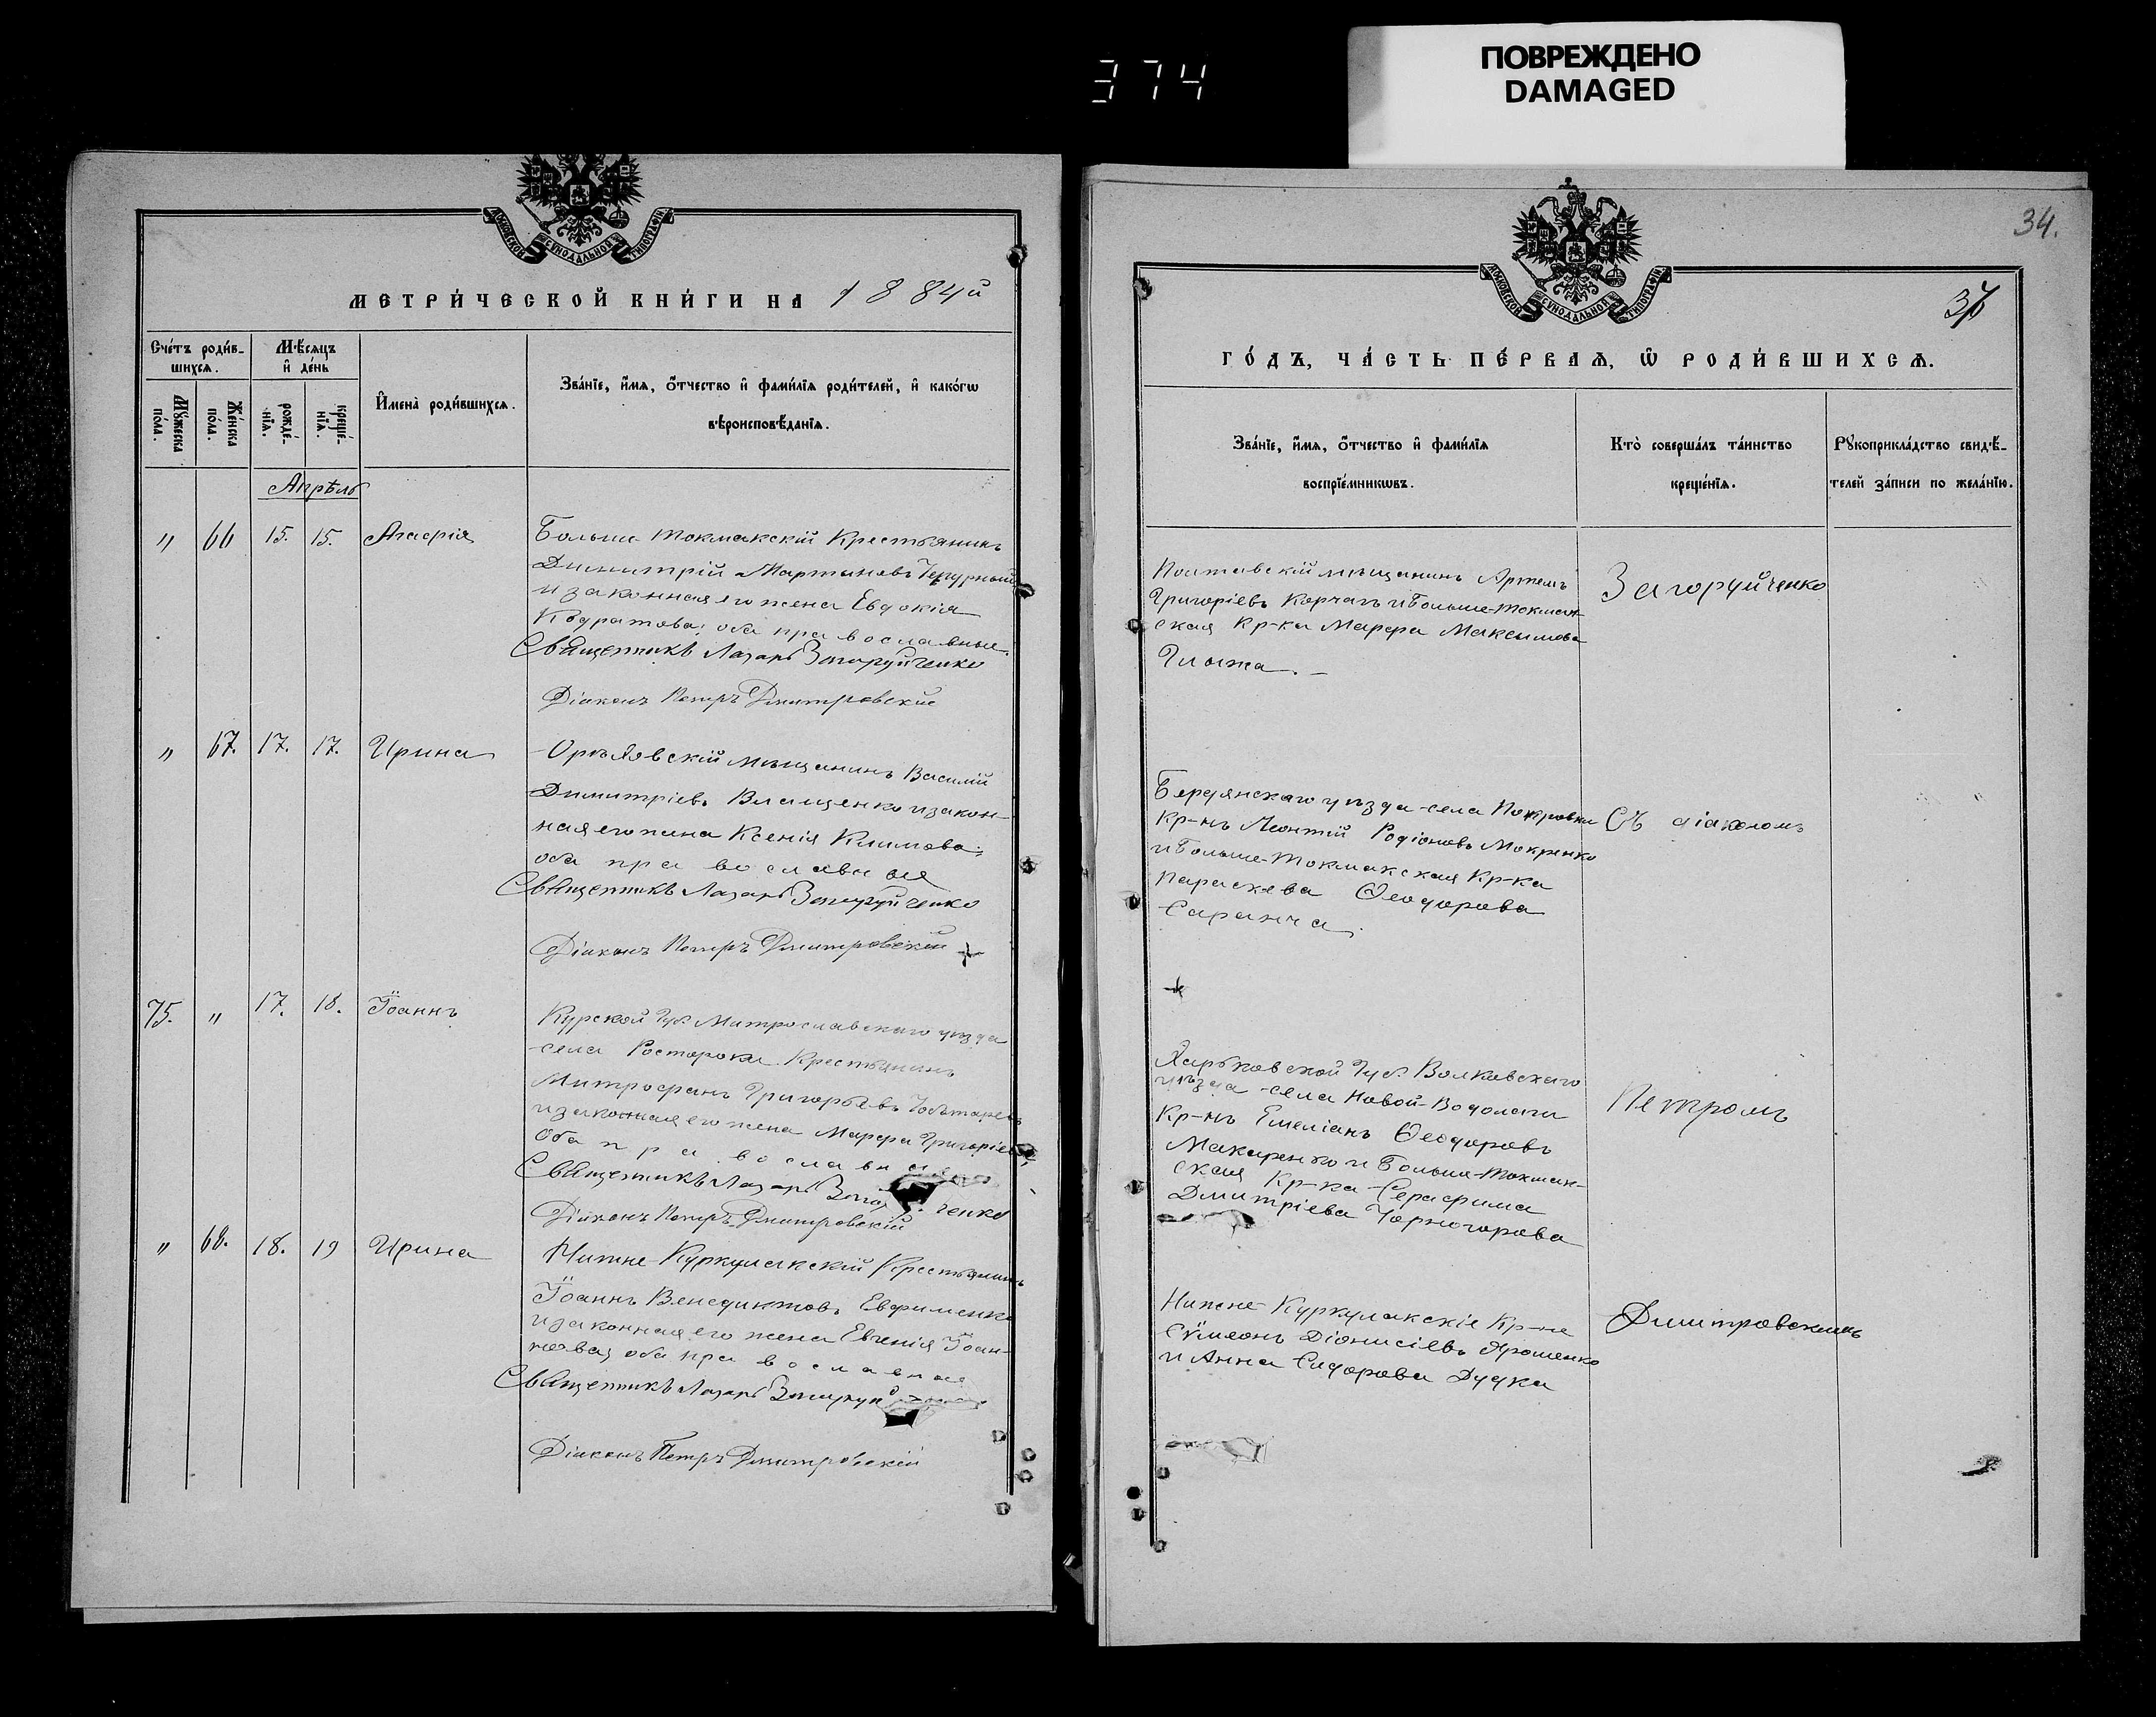 374
ПОВРЕЖДЕНО
DAMAGED
МОСКОВСКОЙ СѴНОДАЛЬНОЙ ТИПОГРАФІИ
МЕТРИ́ЧЕСКОЙ КНИ́ГИ НА 1884й
Сче́тъ роди́в-
шихсѧ.
Мꙋ́жеска
по́ла.
Же́нска
по́ла.
Мѣ́сѧцъ
и҆ де́нь
рожде́-
нїѧ.
креще́-
нїѧ.
И҆мена̀ роди́вшихсѧ.
Зва́нїе, и҆́мѧ, ѻ҆́тчество и҆ фами́лїѧ роди́телей, и҆ како́гѡ
вѣроисповѣ́данїѧ.
Апрѣль
" 66 15. 15. Агафія
Больше-Токмакскій Крестьянинъ
Димитрій Мартыновъ
и законная его жена Евдокія
Кодратова; оба православные.
Священникъ Лазарь Загоруйченко
Діаконъ Петръ Дмитровскій
" 67. 17. 17. Ирина
Орѣховскій мѣщанинъ Василій
Димитріевъ Влащенко и закон-
ная его жена Ксенія Климова;
оба православные
Священникъ Лазарь Загоруйченко
Діаконъ Петръ Дмитровскій
75. " 17. 18. Іоаннъ
Курской Губ. Митрославскаго уѣзда
села Ростороки Крестьянинъ
Митрофанъ Григорьевъ
и законная его жена Марфа Григоріева
Оба православные
Священникъ Лазарь Заго ченко
Діаконъ Петръ Дмитровскій
" 68. 18. 19 Ирина
Нижне-Куркулакскій Крестьянинъ
Іоаннъ Венедиктовъ Евфименко
и законная его жена Евгенія Іоан-
нова, оба православные
Священникъ Лазарь Загоруй
Діаконъ Петръ Дмитровскій
34.
МОСКОВСКОЙ СѴНОДАЛЬНОЙ ТИПОГРАФІИ
ГО́ДЪ, ЧА́СТЬ ПЕ́РВАѦ, Ѡ҆ РОДИ́ВШИХСѦ.
Зва́нїе, и҆́мѧ, ѻ҆́тчество и҆ фами́лїѧ
воспрїе́мникѡвъ.
Кто̀ соверша́лъ та́инство
креще́нїѧ.
Рꙋкоприкла́дство свидѣ́-
телей за́писи по жела́нїю.
Полтавскій мѣщанинъ Артемъ
Григоріевъ Корчагъ и Больше-Токмак-
ская Кр-ка Марфа Максимова
Глыжа.
Загоруйченко
Бердянскаго уѣзда села Покровки
Кр-нъ Леонтій Родіоновъ Мокренко
и Больше-Токмакская Кр-ка
Параскева Ѳеодорова
Саранча.
Съ діакономъ
Харьковской Губ. Волковскаго
уѣзда села Новой-Водолаги
Кр-нъ Емеліанъ Ѳеодоровъ
Макаренко и Больше-Токмак-
ская Кр-ка Серафима
Дмитріева Чорногорова
Петромъ
Нижне-Куркулакскіе Кр-не
Сѵмеонъ Діонисіевъ Ярошенко
и Анна Сидорова Дудка
Дмитровскимъ